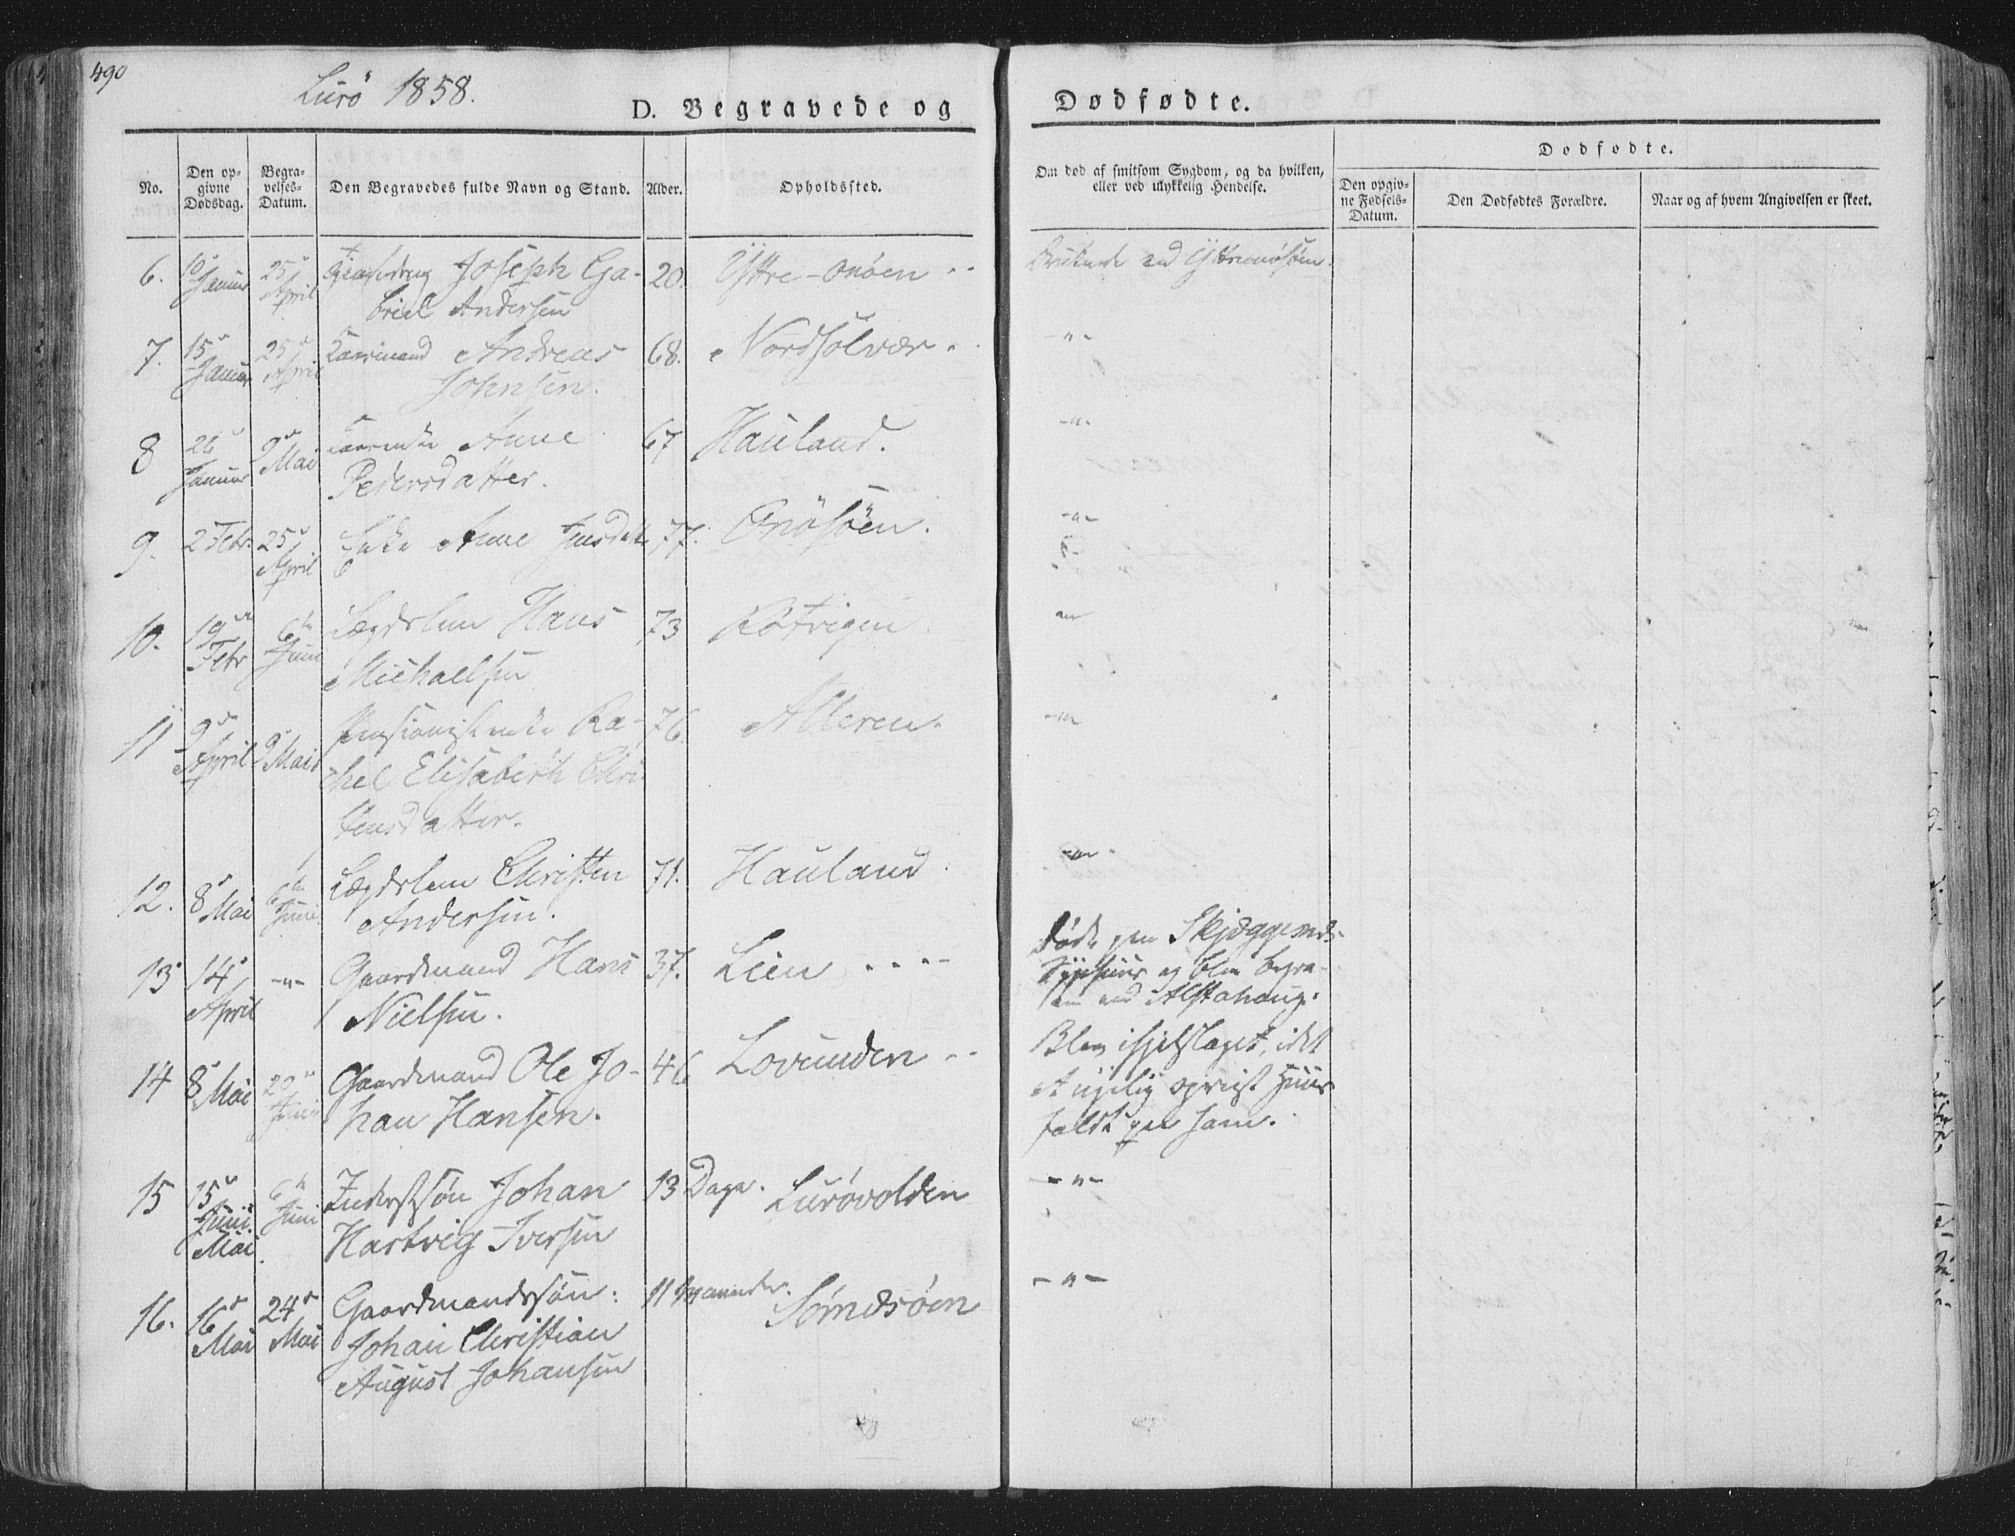 490
Lurö 1858.
D. Begravede og
Dødfødte.
No.
Den opgivne Dødsdag.
Begravelses-Datum.
Den Begravedes fulde Navn og Stand.
Alder.
Opholdssted.
Om død af smitsom Sygdom, og da hvilken, eller ved ulykkelig Hendelse.
Dødfødte.
Den opgivne Fødsels-Datum.
Den Dødfødtes Forældre.
Naar og af hvem Angivelsen er skeet.
6. Januar 25 April Joseph Ga- 20. Yttre-Onöen
briel Andersen
7. 15 Januar 25 April Andreas 68. Nordsolvær. -"-
Johnsen.
8 26 Januar 9 Mai Anne 67 Hauland. -"-
Pedersdatter.
9. 2 Febr. 25 April Enke Anne Jensdatt 77. Onösöen. -"-
10. 19 Febr 6 Juni Lægdslem Hans 73 Rötvigen.
Michaelsen
11 9 April 9 Mai Pensionistenke Ra- 76. Alleren. -"-
chel Elisabeth Chri
stensdatter.
12. 8 Mai 6 Juni Lægdslem Christen 71. Hauland. -"-
Andersen.
13 14 April -"- Gaardmand Hans 37. Lien
Nielsen.
Døde paa
Sygehuus og blev begra-
ved Alstahoug.
14 8 Mai 20 Juni Gaardmand Ole Jo- 46 Lovunden
han Hansen.
Blev ihjelslaget, idet
et nyelig opreist Huus
faldt paa ham.
15 15 Juni Mai 6 Juni Inderstsön Johan 13 Dage. Luróvolden -"-
Hartvig Iversen
16. 16 Mai 24 Mai Gaardmandssön: 11 Maaneder. Sörnesöen -"-
Johan Christian
August Johansen